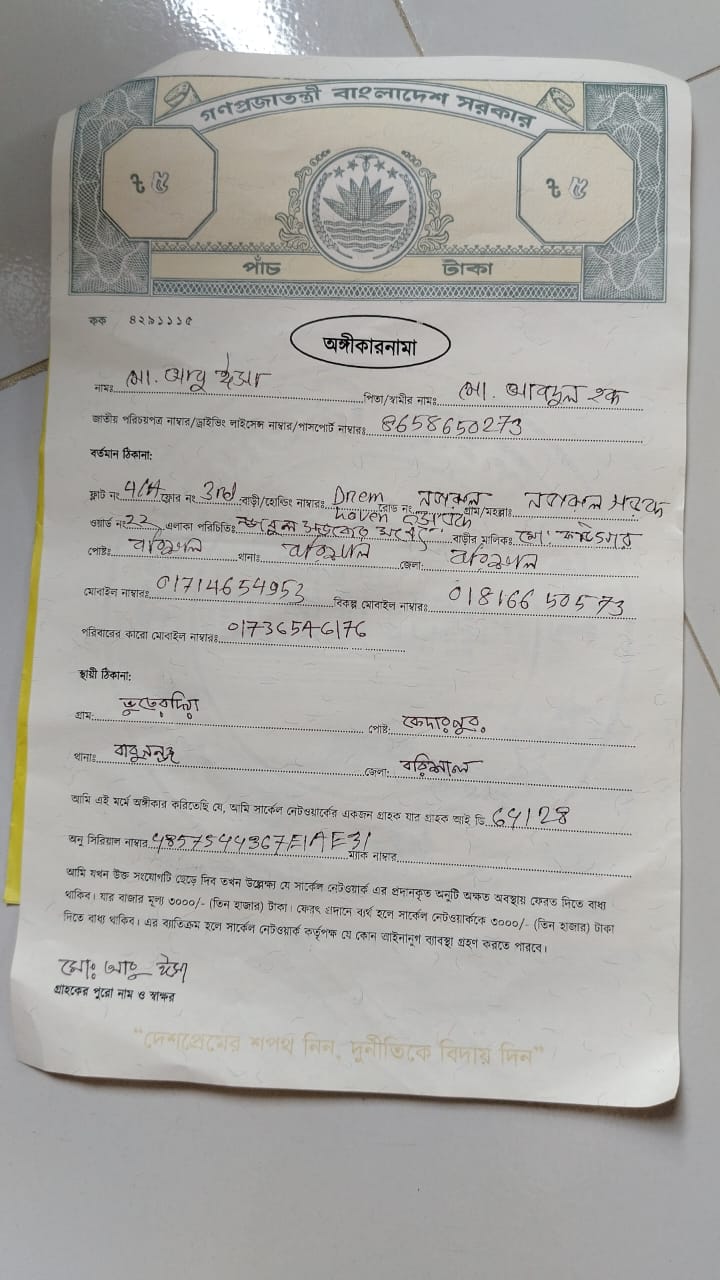 গণপ্রজাতন্ত্রী বাংলাদেশ সরকার
৳ ৫ ৳ ৫
পাঁচ টাকা
কক ৪২৯১১১৫
অঙ্গীকারনামা
নামঃ মো. আবু ঈসা পিতা/স্বামীর নামঃ মো. আবদুল হক
জাতীয় পরিচয়পত্র নাম্বার/ড্রাইভিং লাইসেন্স নাম্বার/পাসপোর্ট নাম্বারঃ 8658650273
বর্তমান ঠিকানা:
ফ্লাট নং 4/A ফ্লোর নং 3rd বাড়ী/হোল্ডিং নাম্বারঃ রোড নং গ্রাম/মহল্লাঃ
ওয়ার্ড নং 22 এলাকা পরিচিতিঃ বাড়ীর মালিকঃ
পোষ্টঃ বরিশাল থানাঃ বরিশাল জেলা: বরিশাল
মোবাইল নাম্বারঃ 01714654953 বিকল্প মোবাইল নাম্বারঃ 01816650573
পরিবারের কারো মোবাইল নাম্বারঃ 01736546176
স্থায়ী ঠিকানা:
গ্রাম: ভুতেরদিয়া পোষ্ট: কেদারপুর
থানাঃ বাবুগঞ্জ জেলা: বরিশাল
আমি এই মর্মে অঙ্গীকার করিতেছি যে, আমি সার্কেল নেটওয়ার্কের একজন গ্রাহক যার গ্রাহক আই ডি 64128
অনু সিরিয়াল নাম্বার 48575449367E1AE31 ম্যাক নাম্বার
আমি যখন উক্ত সংযোগটি ছেড়ে দিব তখন উল্লেক্ষ্য যে সার্কেল নেটওয়ার্ক এর প্রদানকৃত অনুটি অক্ষত অবস্থায় ফেরত দিতে বাধ্য
থাকিব। যার বাজার মূল্য ৩০০০/- (তিন হাজার) টাকা। ফেরৎ প্রদানে ব্যর্থ হলে সার্কেল নেটওয়ার্ককে ৩০০০/- (তিন হাজার) টাকা
দিতে বাধ্য থাকিব। এর ব্যতিক্রম হলে সার্কেল নেটওয়ার্ক কর্তৃপক্ষ যে কোন আইনানুগ ব্যাবস্থা গ্রহণ করতে পারবে।
মোঃ আবু ঈসা
গ্রাহকের পুরো নাম ও স্বাক্ষর
“দেশপ্রেমের শপথ নিন, দুর্নীতিকে বিদায় দিন”